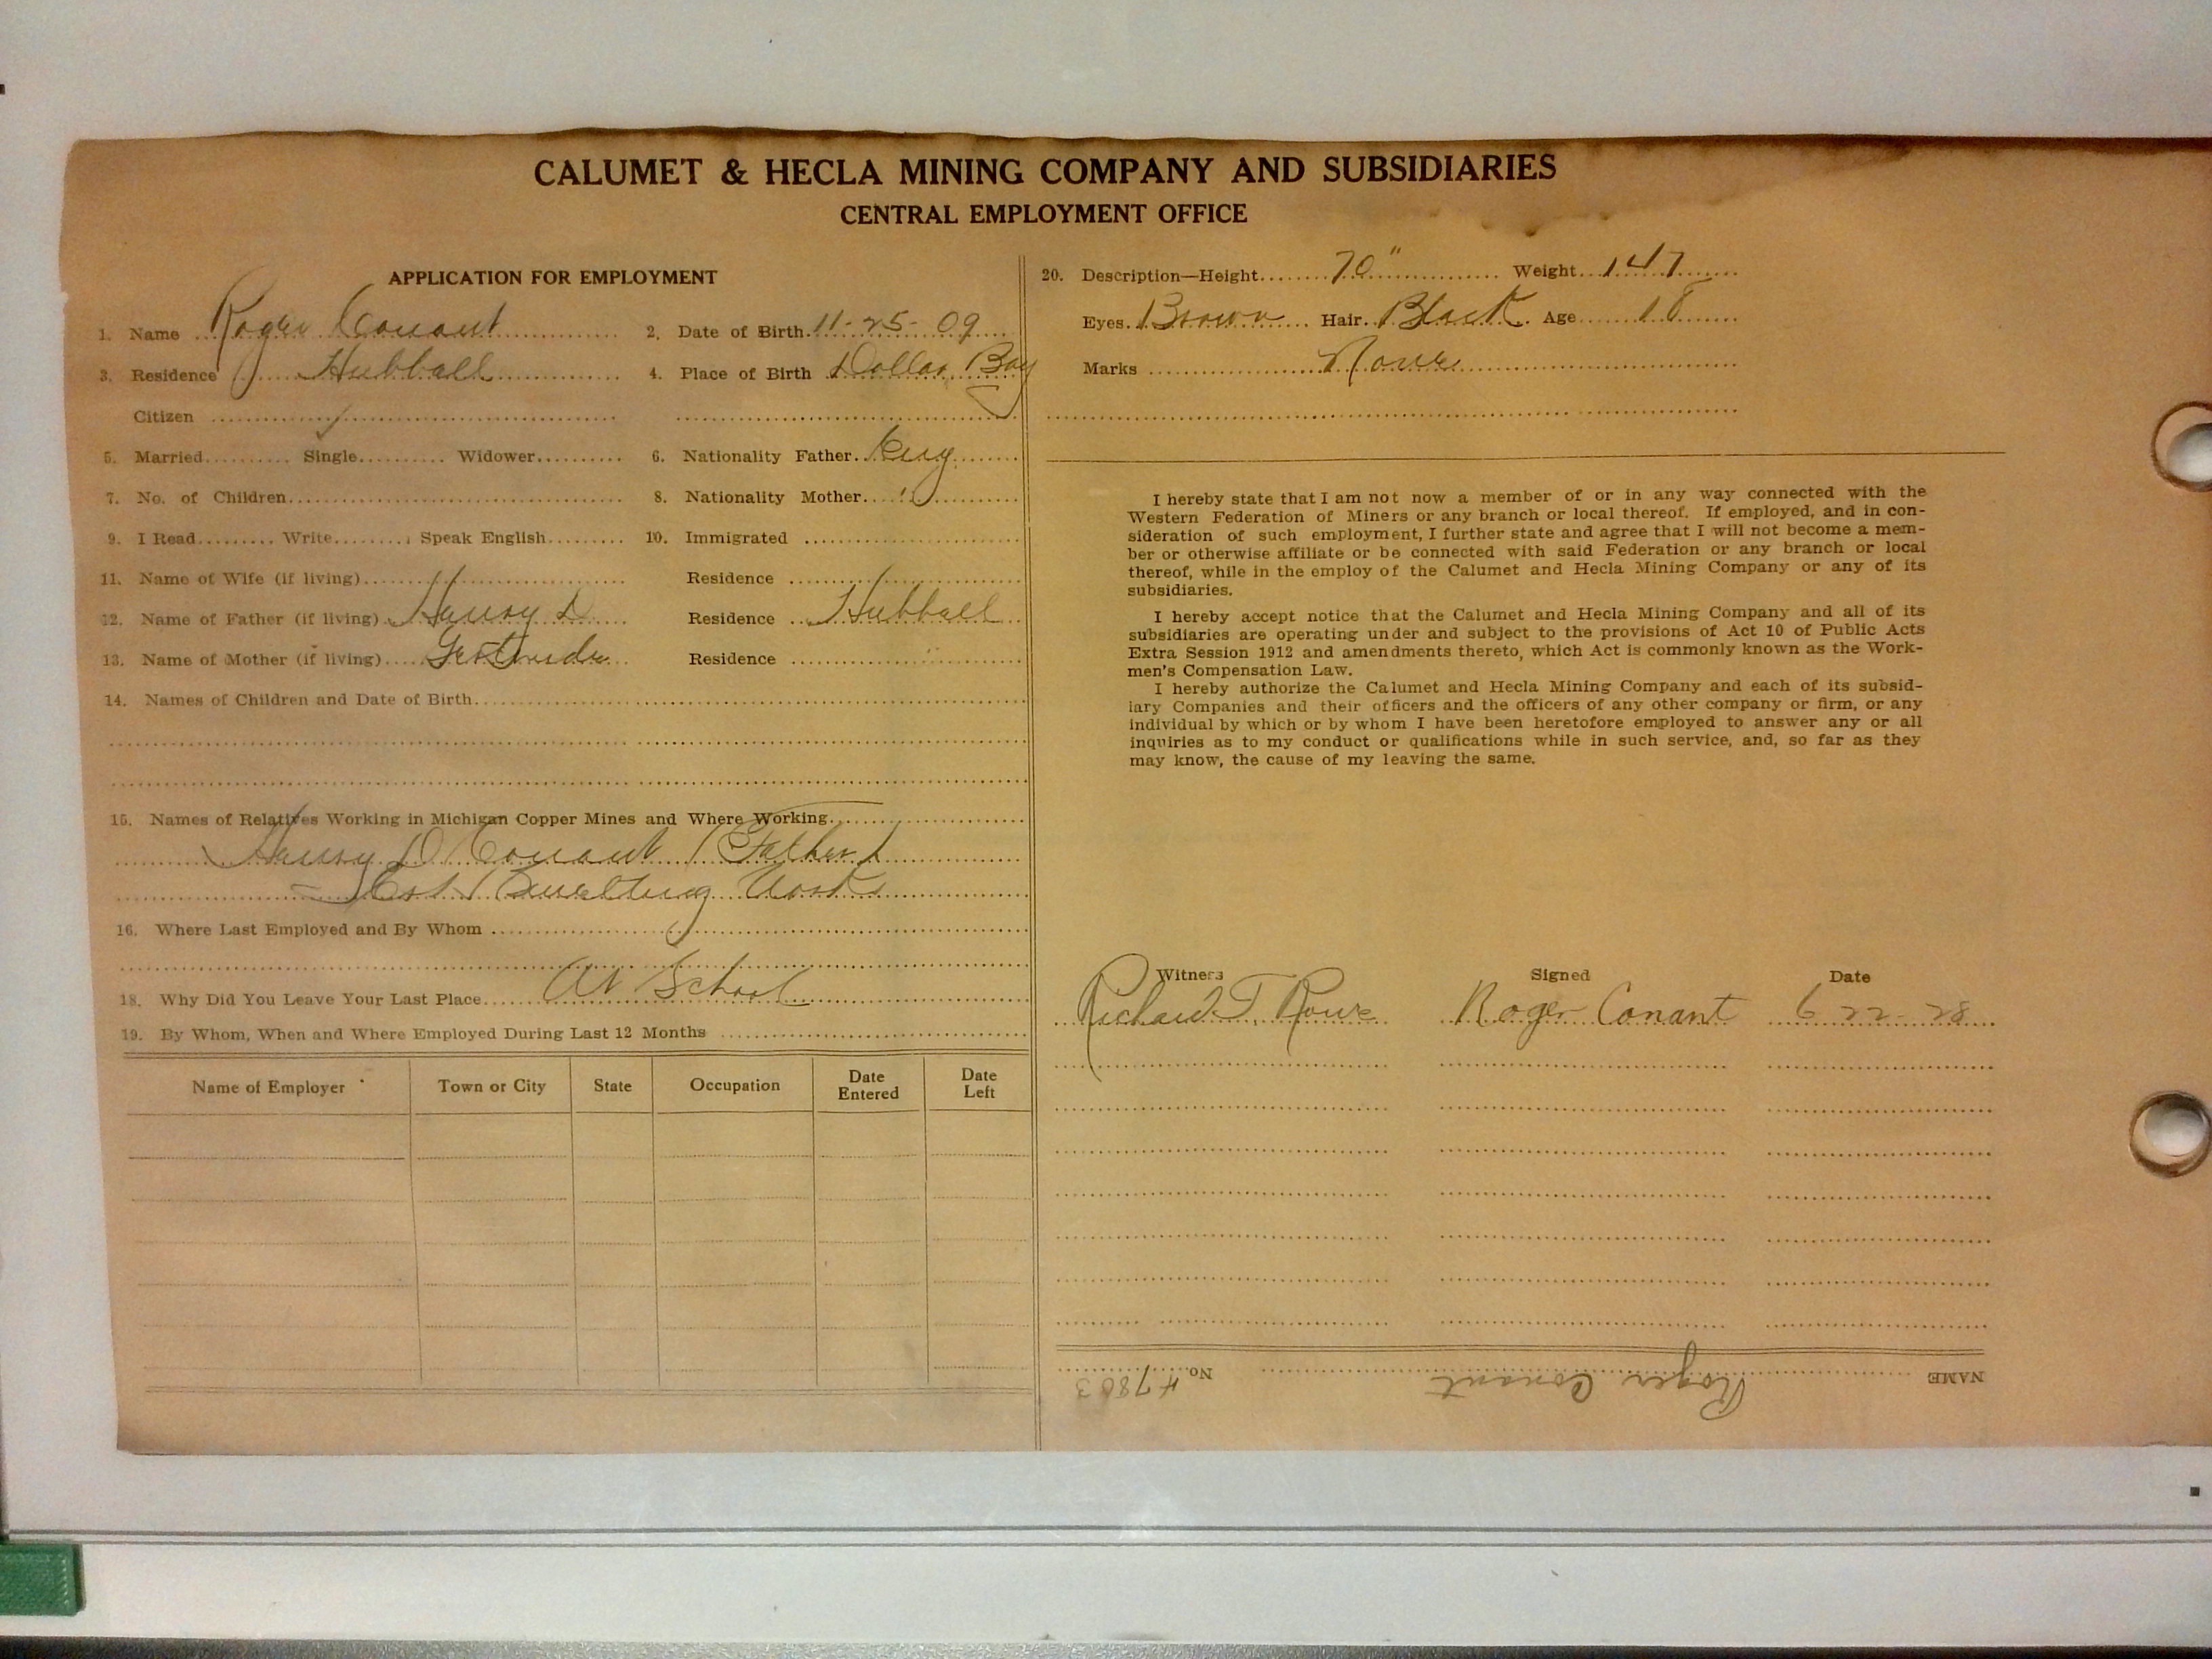 CALUMET & HECLA MINING COMPANY AND SUBSIDIARIES
CENTRAL EMPLOYMENT OFFICE
APPLICATION FOR EMPLOYMENT
1. Name Roger Conant 2. Date of Birth 11-25-09
3. Residence Hubball 4. Place of Birth Dollar Bay
Citizen
5. Married Single Widower 6. Nationality Father
7. No. of Children 8. Nationality Mother "
9. I Read Write Speak English 10. Immigrated
11. Name of Wife (if living) Residence
12. Name of Father (if living) Henry D Residence Hubball
13. Name of Mother (if living) Gertrude Residence "
14. Names of Children and Date of Birth
15. Names of Relatives Working in Michigan Copper Mines and Where Working
Henry D Conant (Father)
Smelting Works
16. Where Last Employed and By Whom
18. Why Did You Leave Your Last Place At School
19. By Whom, When and Where Employed During Last 12 Months
Name of Employer Town or City State Occupation Date Entered Date Left
20. Description—Height 70" Weight 147
Eyes Brown Hair Black Age 18
Marks None
I hereby state that I am not now a member of or in any way connected with the
Western Federation of Miners or any branch or local thereof. If employed, and in con-
sideration of such employment, I further state and agree that I will not become a mem-
ber or otherwise affiliate or be connected with said Federation or any branch or local
thereof, while in the employ of the Calumet and Hecla Mining Company or any of its
subsidiaries.
I hereby accept notice that the Calumet and Hecla Mining Company and all of its
subsidiaries are operating under and subject to the provisions of Act 10 of Public Acts
Extra Session 1912 and amendments thereto, which Act is commonly known as the Work-
men's Compensation Law.
I hereby authorize the Calumet and Hecla Mining Company and each of its subsid-
iary Companies and their officers and the officers of any other company or firm, or any
individual by which or by whom I have been heretofore employed to answer any or all
inquiries as to my conduct or qualifications while in such service, and, so far as they
may know, the cause of my leaving the same.
Witness Signed Date
Richard T. Rowe Roger Conant 6 22-28
NAME Roger Conant No. #7863